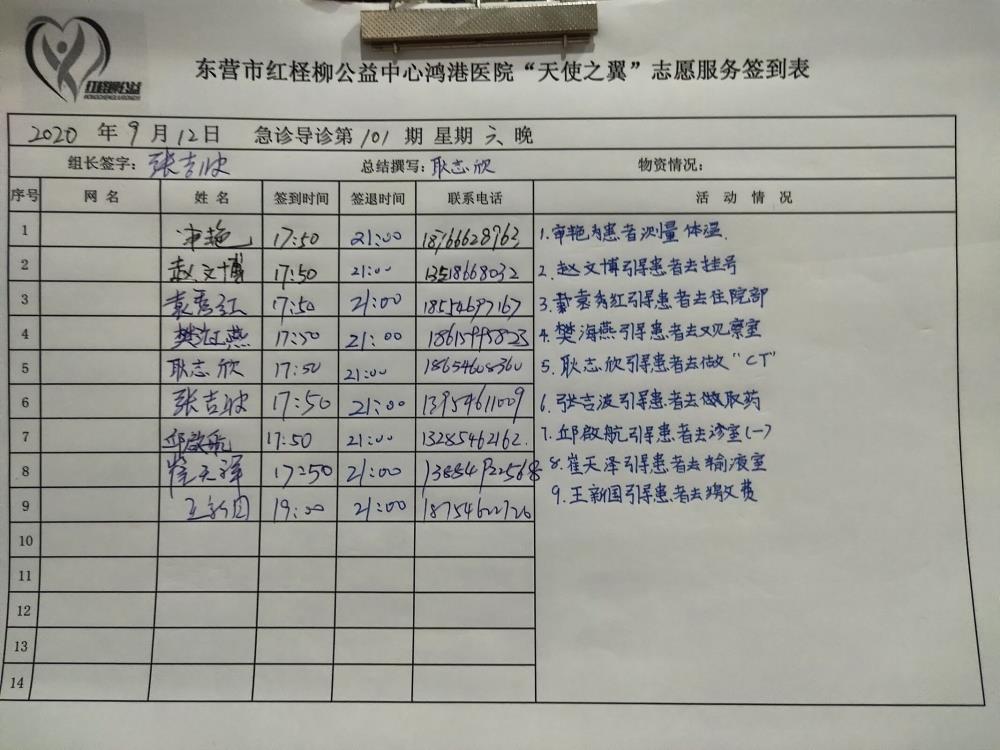 红柽柳公益
HONGCHENGLIUGONGYI
东营市红柽柳公益中心鸿港医院“天使之翼”志愿服务签到表
2020 年 9 月 12 日 急诊导诊第 101 期 星期 六 晚
组长签字: 张吉波 总结撰写: 耿志欣 物资情况:
序号 网名 姓名 签到时间 签退时间 联系电话 活动情况
1 审艳 17:50 21:00 18766628962 1.审艳为患者测量体温.
2 赵文博 17:50 21:00 13518668032 2.赵文博引导患者去挂号
3 袁秀红 17:50 21:00 18554697167 3.袁秀红引导患者去住院部
4 樊海燕 17:50 21:00 18615995823 4.樊海燕引导患者去观察室
5 耿志欣 17:50 21:00 18654608360 5.耿志欣引导患者去做“CT”
6 张吉波 17:50 21:00 13954611009 6.张吉波引导患者去做取药
7 邱啟航 17:50 21:00 13285462162. 7.邱啟航引导患者去诊室(一)
8 崔天泽 17:50 21:00 13884932568 8.崔天泽引导患者去输液室
9 王新国 19:00 21:00 18754622726 9.王新国引导患者去缴费
10
11
12
13
14